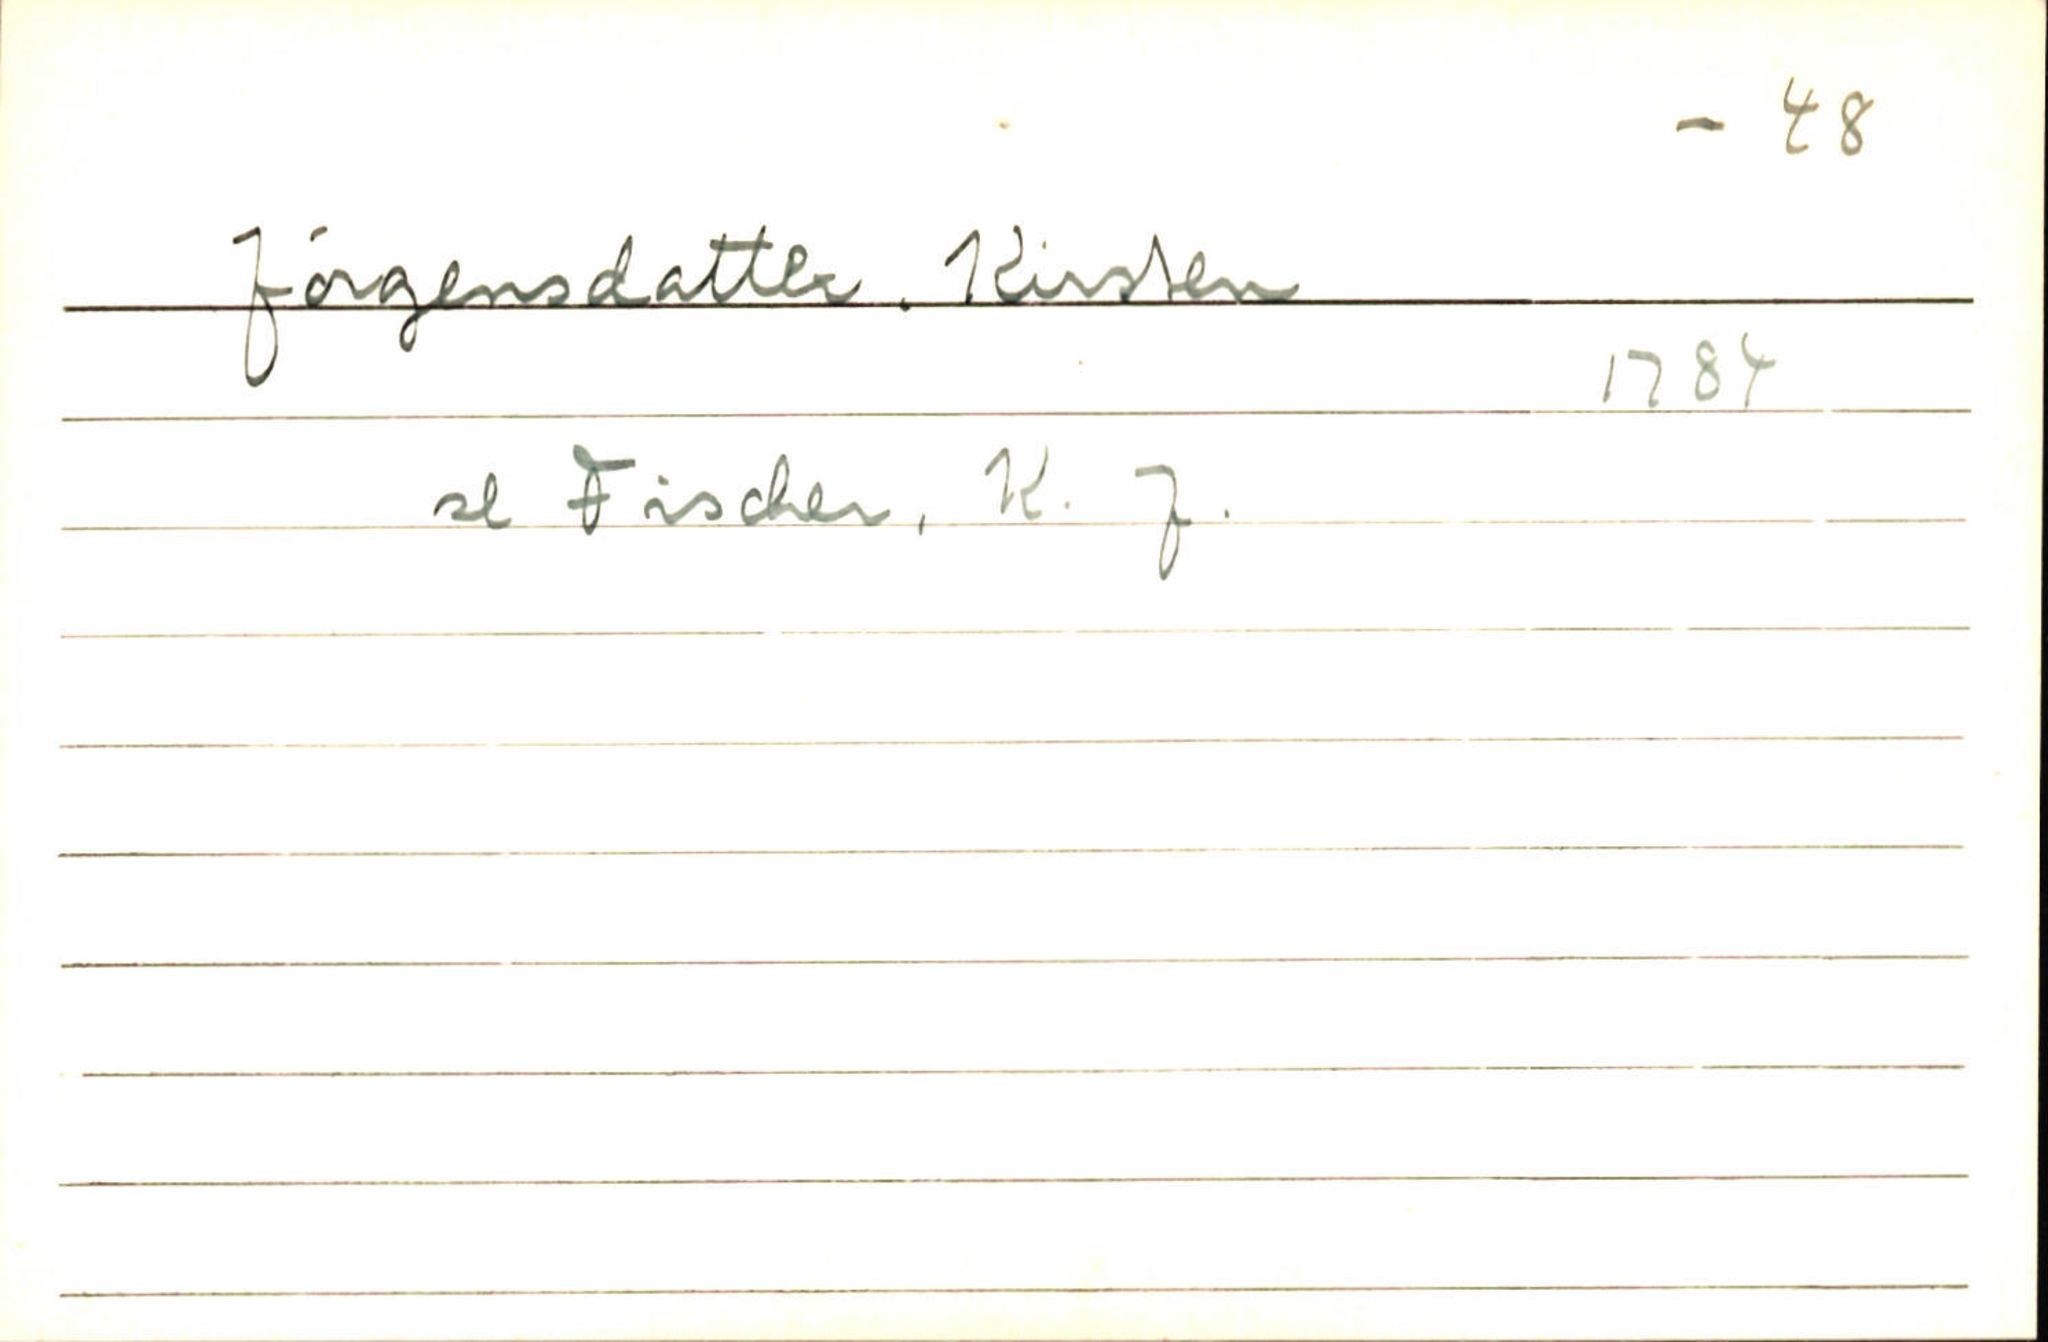 - 48
Jörgensdatter, Kirsten
1784
se Fischer, K. J.